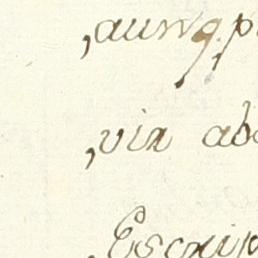 ,aunq. p
,via ab
,Escrip